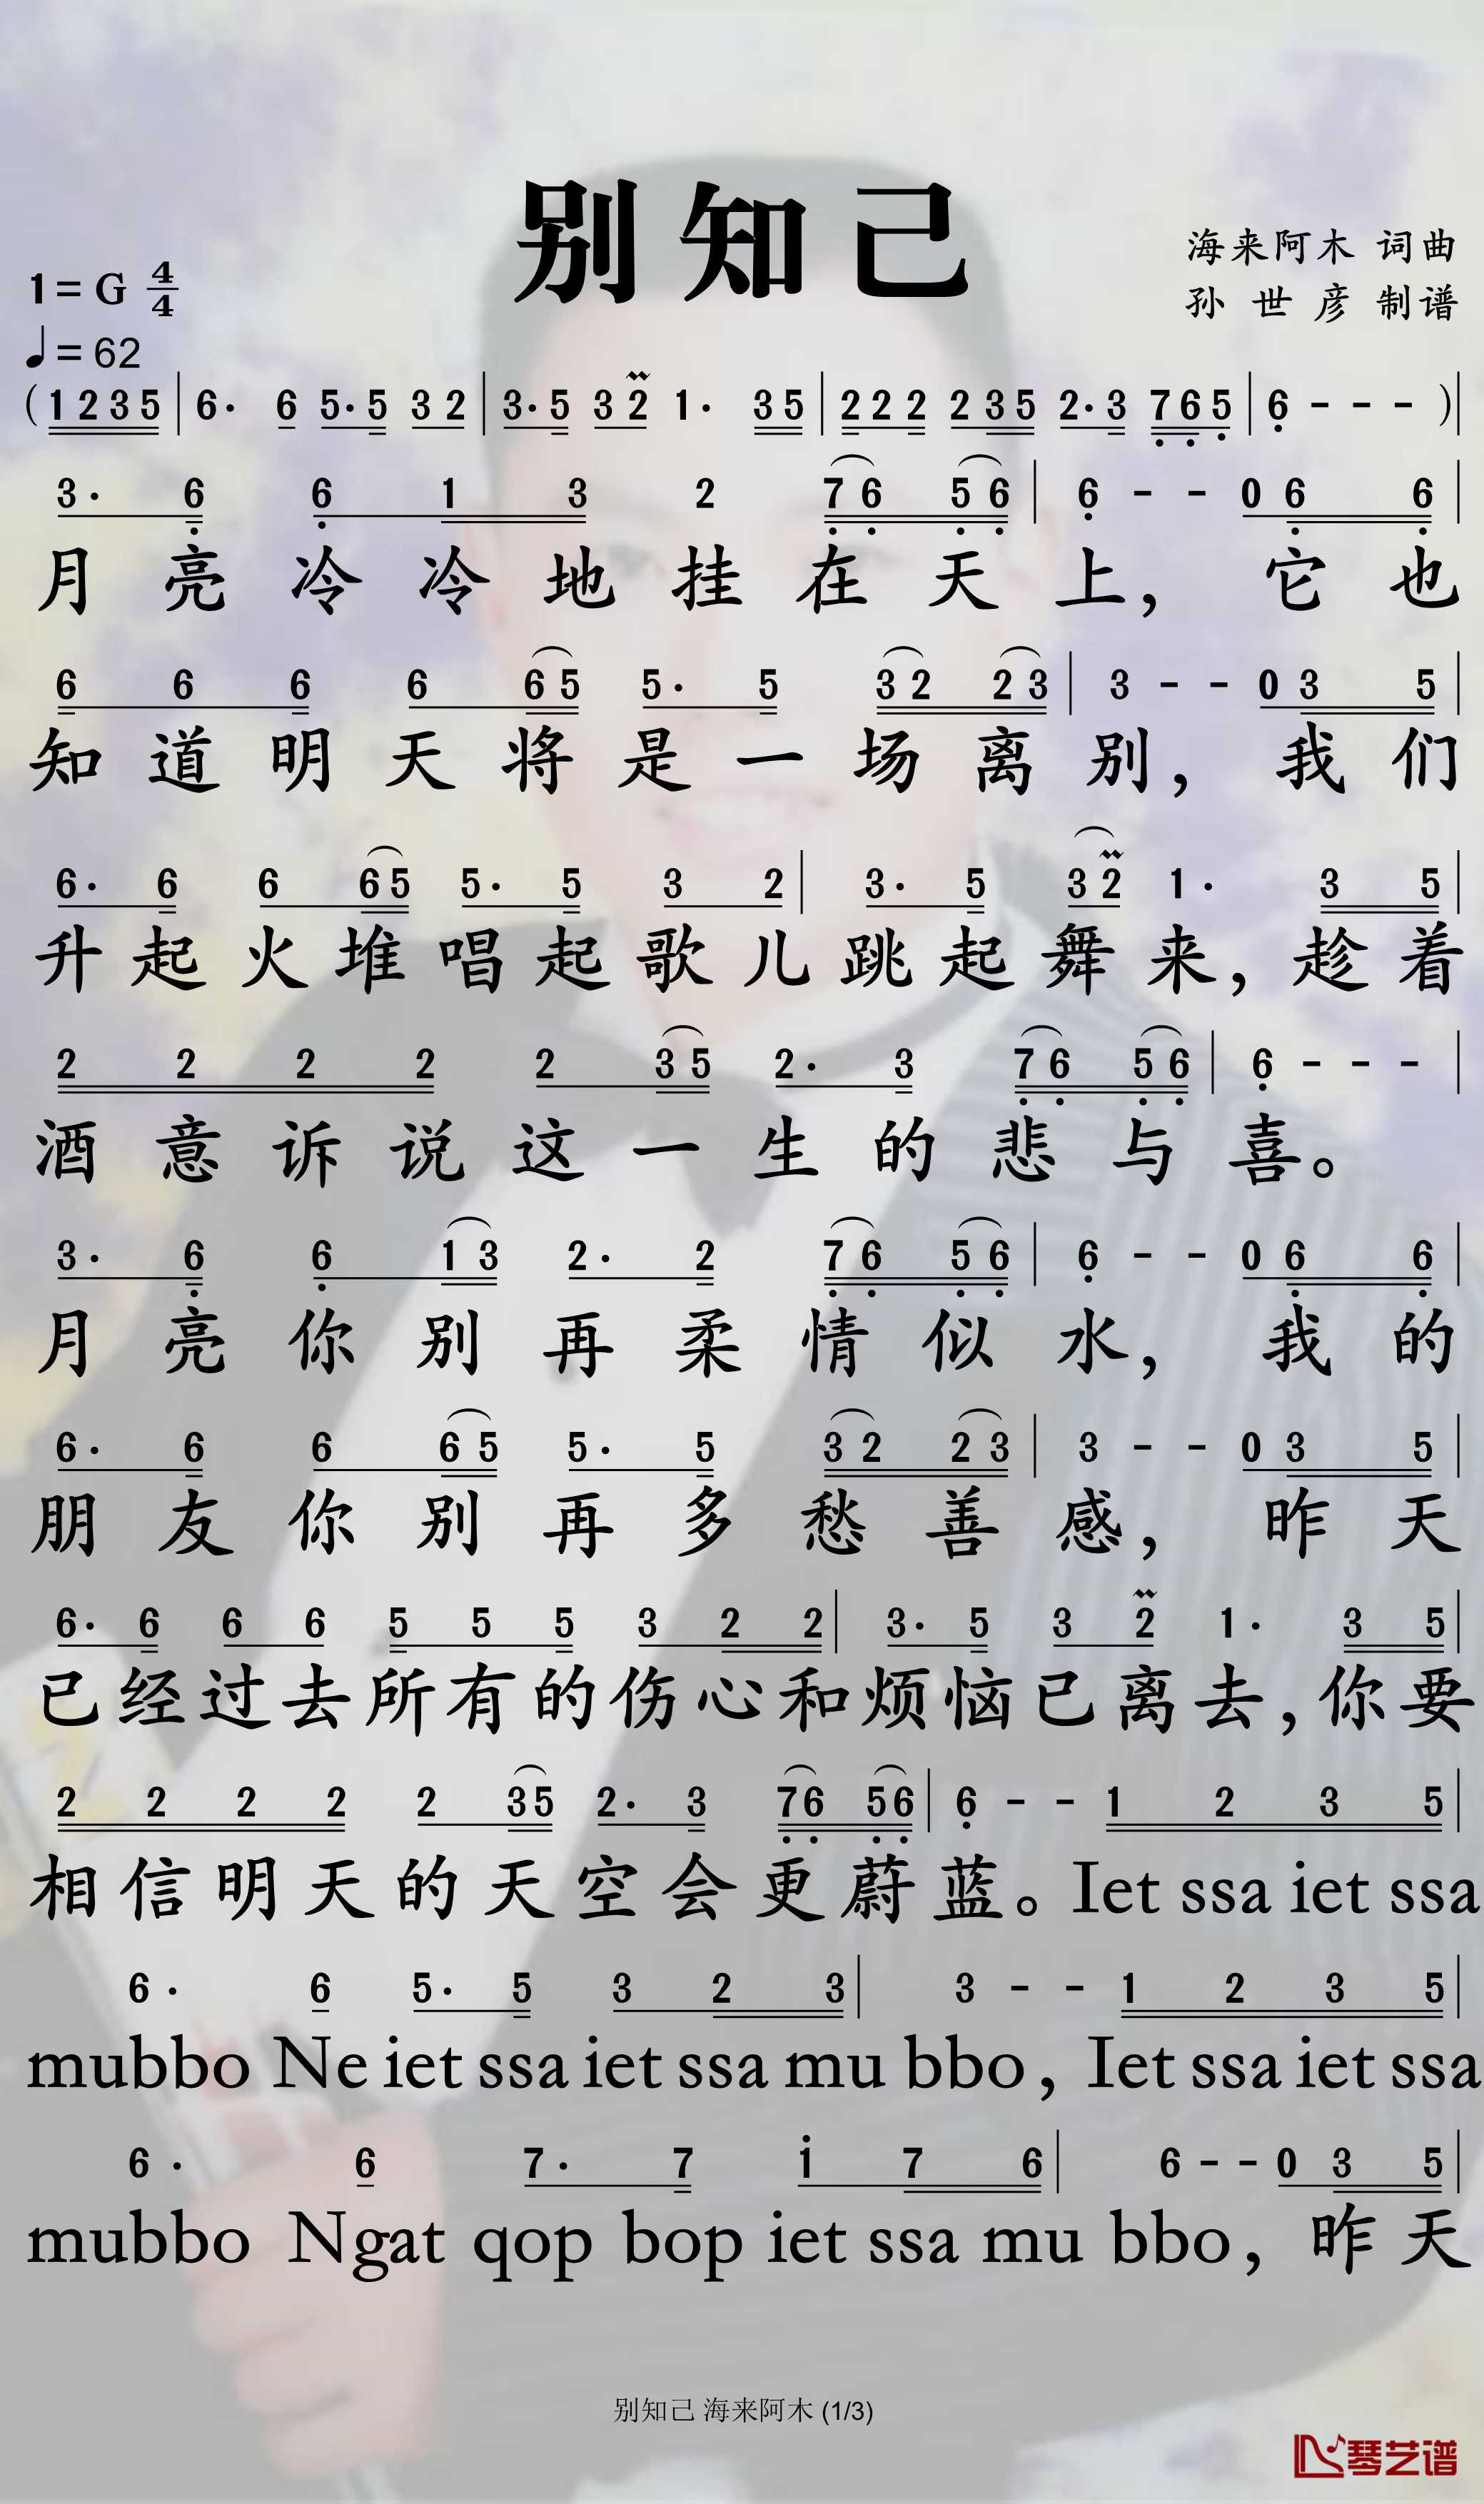 别知己
海来阿木 词曲
1= G 4/4
孙世彦 制谱
♩= 62
( 1 2 3 5 | 6· 6 5·5 3 2 | 3·5 3 2 1· 3 5 | 2 2 2 2 3 5 2·3 7 6 5 | 6 - - - ) |
3· 6 6 1 3 2 7 6 5 6 | 6 - - 0 6 6 |
月亮冷冷地挂在天上，它也
6 6 6 6 6 5 5· 5 3 2 2 3 | 3 - - 0 3 5 |
知道明天将是一场离别，我们
6· 6 6 6 5 5· 5 3 2 | 3· 5 3 2 1· 3 5 |
升起火堆唱起歌儿跳起舞来，趁着
2 2 2 2 2 3 5 2· 3 7 6 5 6 | 6 - - - |
酒意诉说这一生的悲与喜。
3· 6 6 1 3 2· 2 7 6 5 6 | 6 - - 0 6 6 |
月亮你别再柔情似水，我的
6· 6 6 6 5 5· 5 3 2 2 3 | 3 - - 0 3 5 |
朋友你别再多愁善感，昨天
6· 6 6 6 5 5 5 3 2 2 | 3· 5 3 2 1· 3 5 |
已经过去所有的伤心和烦恼已离去，你要
2 2 2 2 2 3 5 2· 3 7 6 5 6 | 6 - - 1 2 3 5 |
相信明天的天空会更蔚蓝。Iet ssa iet ssa
6· 6 5· 5 3 2 3 | 3 - - 1 2 3 5 |
mubbo Ne iet ssa iet ssa mu bbo，Iet ssa iet ssa
6· 6 7· 7 1 7 6 | 6 - - 0 3 5 |
mubbo Ngat qop bop iet ssa mu bbo，昨天
别知己 海来阿木 (1/3)
琴艺谱